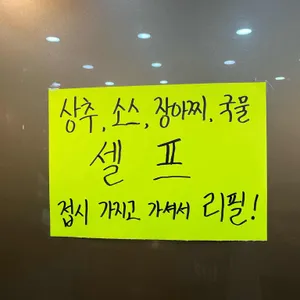 상추, 소스, 장아찌, 국물
셀프
접시 가지고 가셔서 리필!